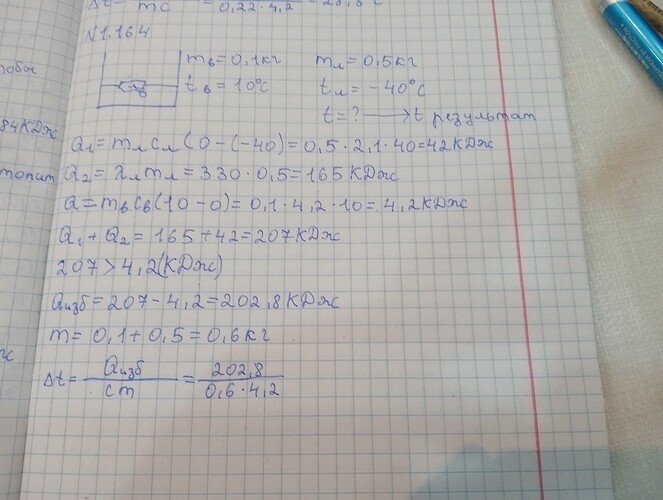 N1.164
mв = 0,1кг mл = 0,5кг
tв = 10°C tл = -40°C
t = ? → t результат
Q1 = mлcл(0-(-40) = 0,5·2,1·40=42КДж
84КДж
Q2 = λлmл = 330·0,5 = 165 КДж
Q = mвcв(10-0) = 0,1·4,2·10 = 4,2КДж
Q1 + Q2 = 165+42 = 207КДж
207 > 4,2(КДж)
Qизб = 207 - 4,2 = 202,8КДж
m = 0,1 + 0,5 = 0,6кг
Δt = Qизб / cm = 202,8 / 0,6·4,2